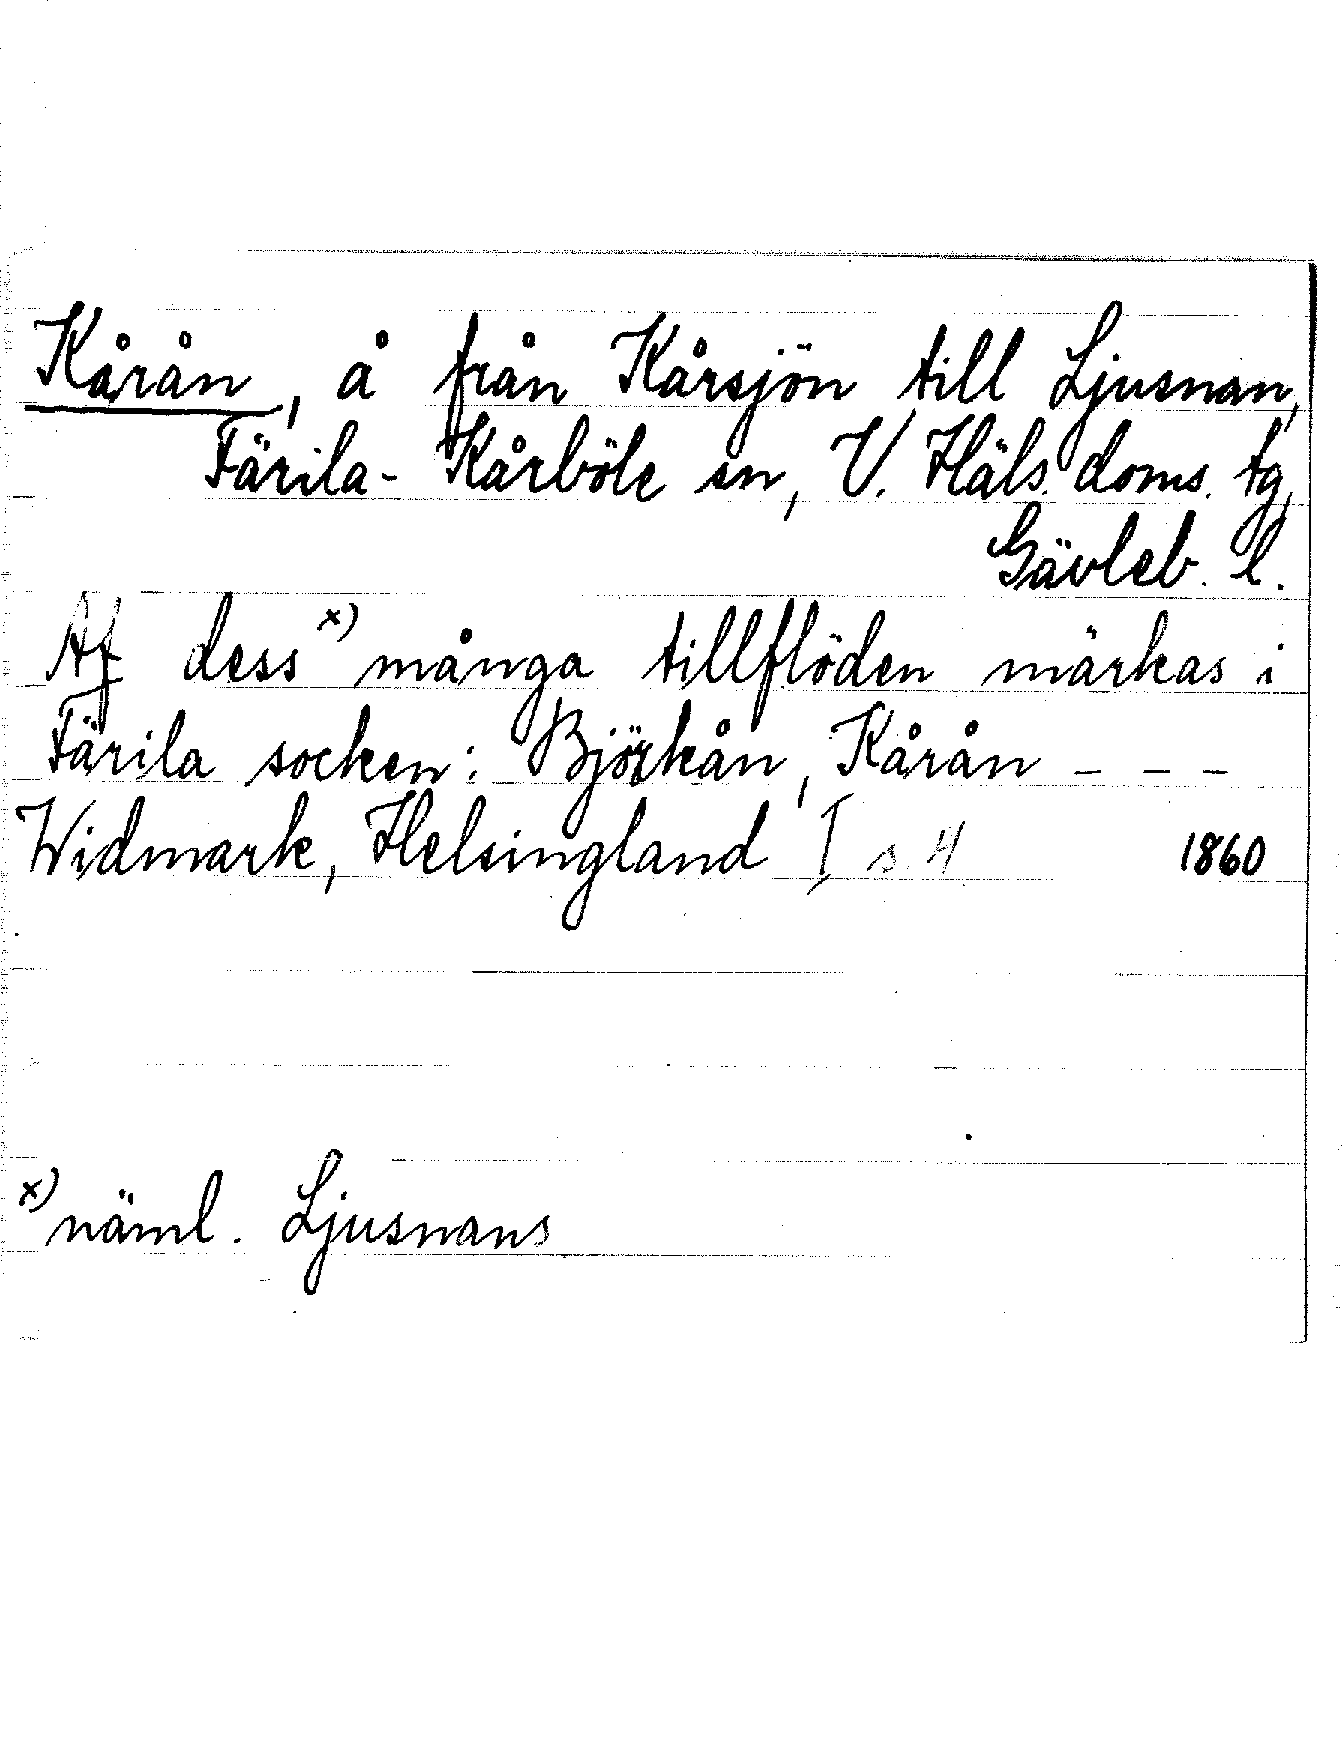 Kårån, å från Kårsjön till Ljusnan,
Färila-Kårböle sn, V. Häls. doms. tg,
Gävleb. l.
Af dess x) många tillflöden märkas i
Färila socken: Björkån, Kårån - - -
Widmark, Helsingland I s. 4 1860
x) näml. Ljusnans